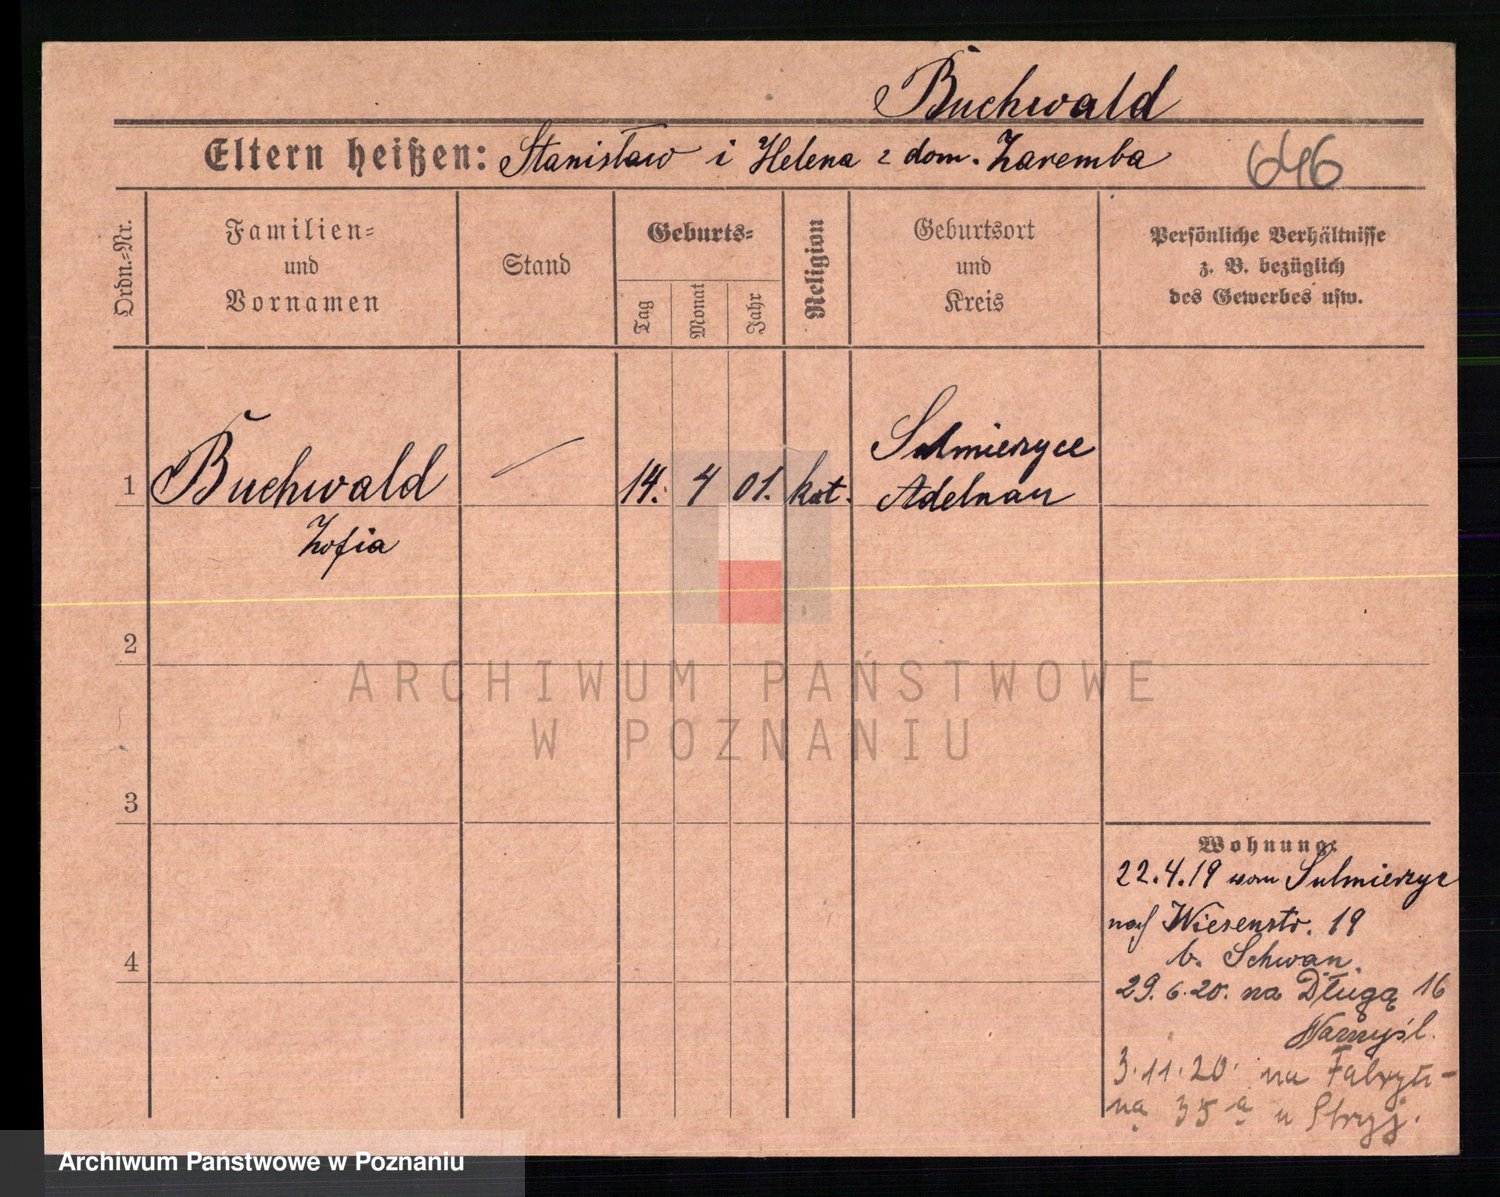 Buchwald
Eltern heißen: Stanisław i Helena z dom. Zaremba 646
Ordn.-Nr.
Familien-
und
Vornamen
Stand
Geburts-
Tag
Monat
Jahr
Religion
Geburtsort
und
Kreis
Persönliche Verhältnisse
z. B. bezüglich
des Gewerbes usw.
1 Buchwald
Zofia
14. 4 01. kat.
Sulmierzyce
Adelnau
2
3
4
Wohnung:
22.4.19 von Sulmierzyc
nach Wiesenstr. 19
b. Schwan.
29.6.20. na Długą 16
Namyśl.
3.11.20. na Fabrycz-
ną 35 a u Stryj.
ARCHIWUM PAŃSTWOWE
W POZNANIU
Archiwum Państwowe w Poznaniu